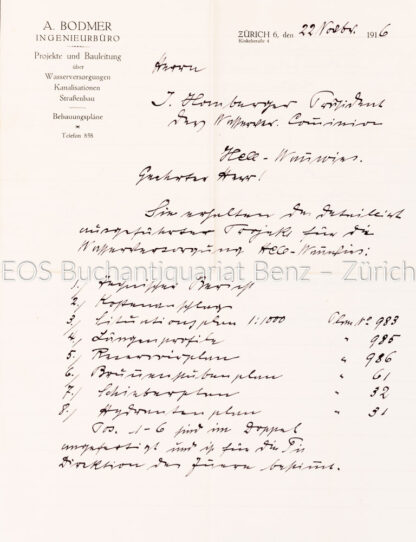 A. BODMER
INGENIEURBÜRO
Projekte und Bauleitung
über
Wasserversorgungen
Kanalisationen
Straßenbau
Bebauungspläne
Telefon 858
ZÜRICH 6, den 22 Novbr. 1916
Kinkelstraße 4
Herrn
J. Homberger Präsident
der Wasserver. Commission
Hell-
Geehrter Herr!
Sie erhalten das detailliert
ausgeführte Projekt für die
Wasserversorgung Hell-
EOS Buchantiquariat Benz – Zürich
1.) Technischer Bericht
2.) Kostenanschlag
3.) Situationsplan 1:1000 Plan No 983
4.) Längenprofile " 985
5.) Reservoirplan " 986
6.) Brunnenstubenplan " 61
7.) Schieberplan " 32
8.) Hydrantenplan " 31
Pos. 1-6 sind im Doppel
angefertigt und je für die
Direktion des Innern bestimmt.